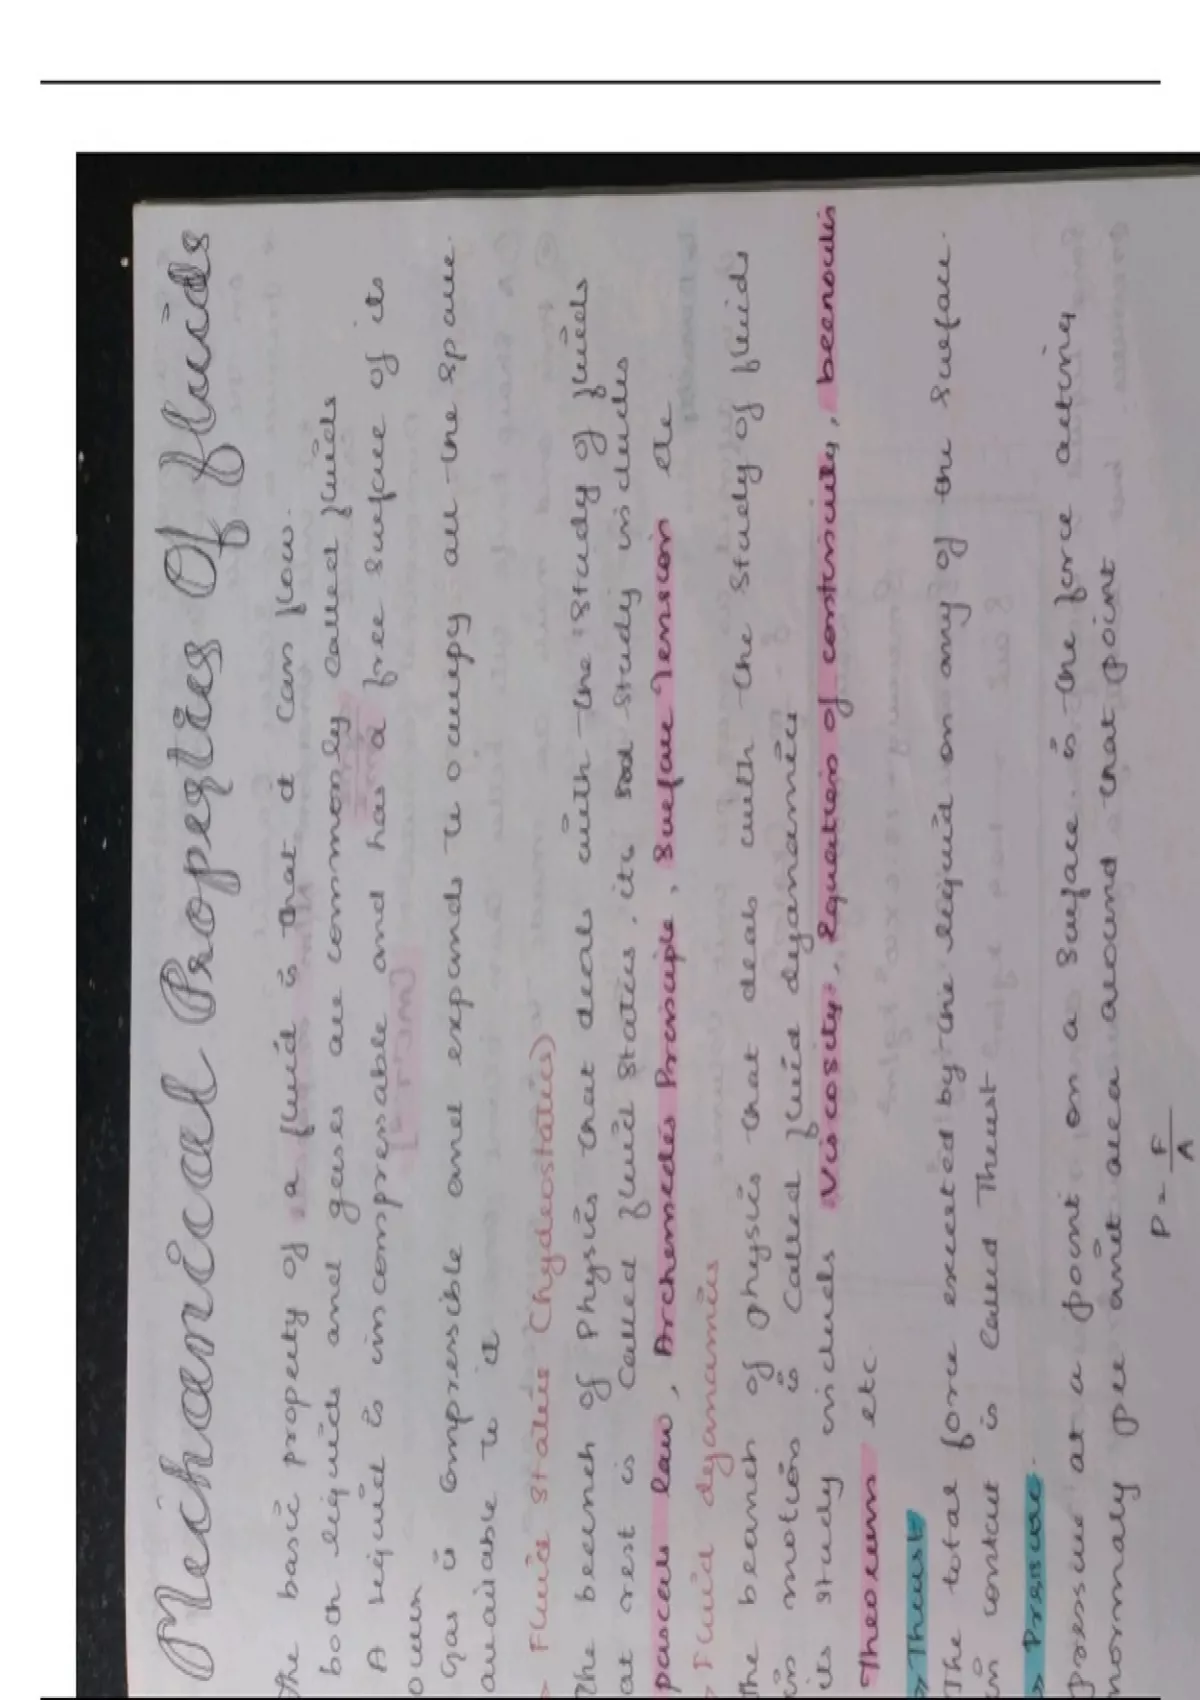 Mechanical Properties Of fluids
The basic property of a fluid is that it can flow.
both liquids and gases are commonly called fluids
A liquid is incompressable and has a free surface of its
own
Gas is compressible and expands to occupy all the space
available to it
> Fluid Statics (hydrostatics)
The branch of Physics that deals with the study of fluids
at rest is called fluid statics, its study includes
pascals law, Archemedis Principle, Surface Tension etc
> Fluid dyanamics
The branch of physics that deals with the study of fluids
in motion is called fluid dyanamics
its study includs Viscosity, Equation of continuity, bernoulis
Theorem etc.
» Thrust
The total force exerted by the liquid on any of the surface.
in contact is called Thrust
» Pressure.
pressure at a point on a surface is the force acting
normaly per unit area around that point
P = F/A